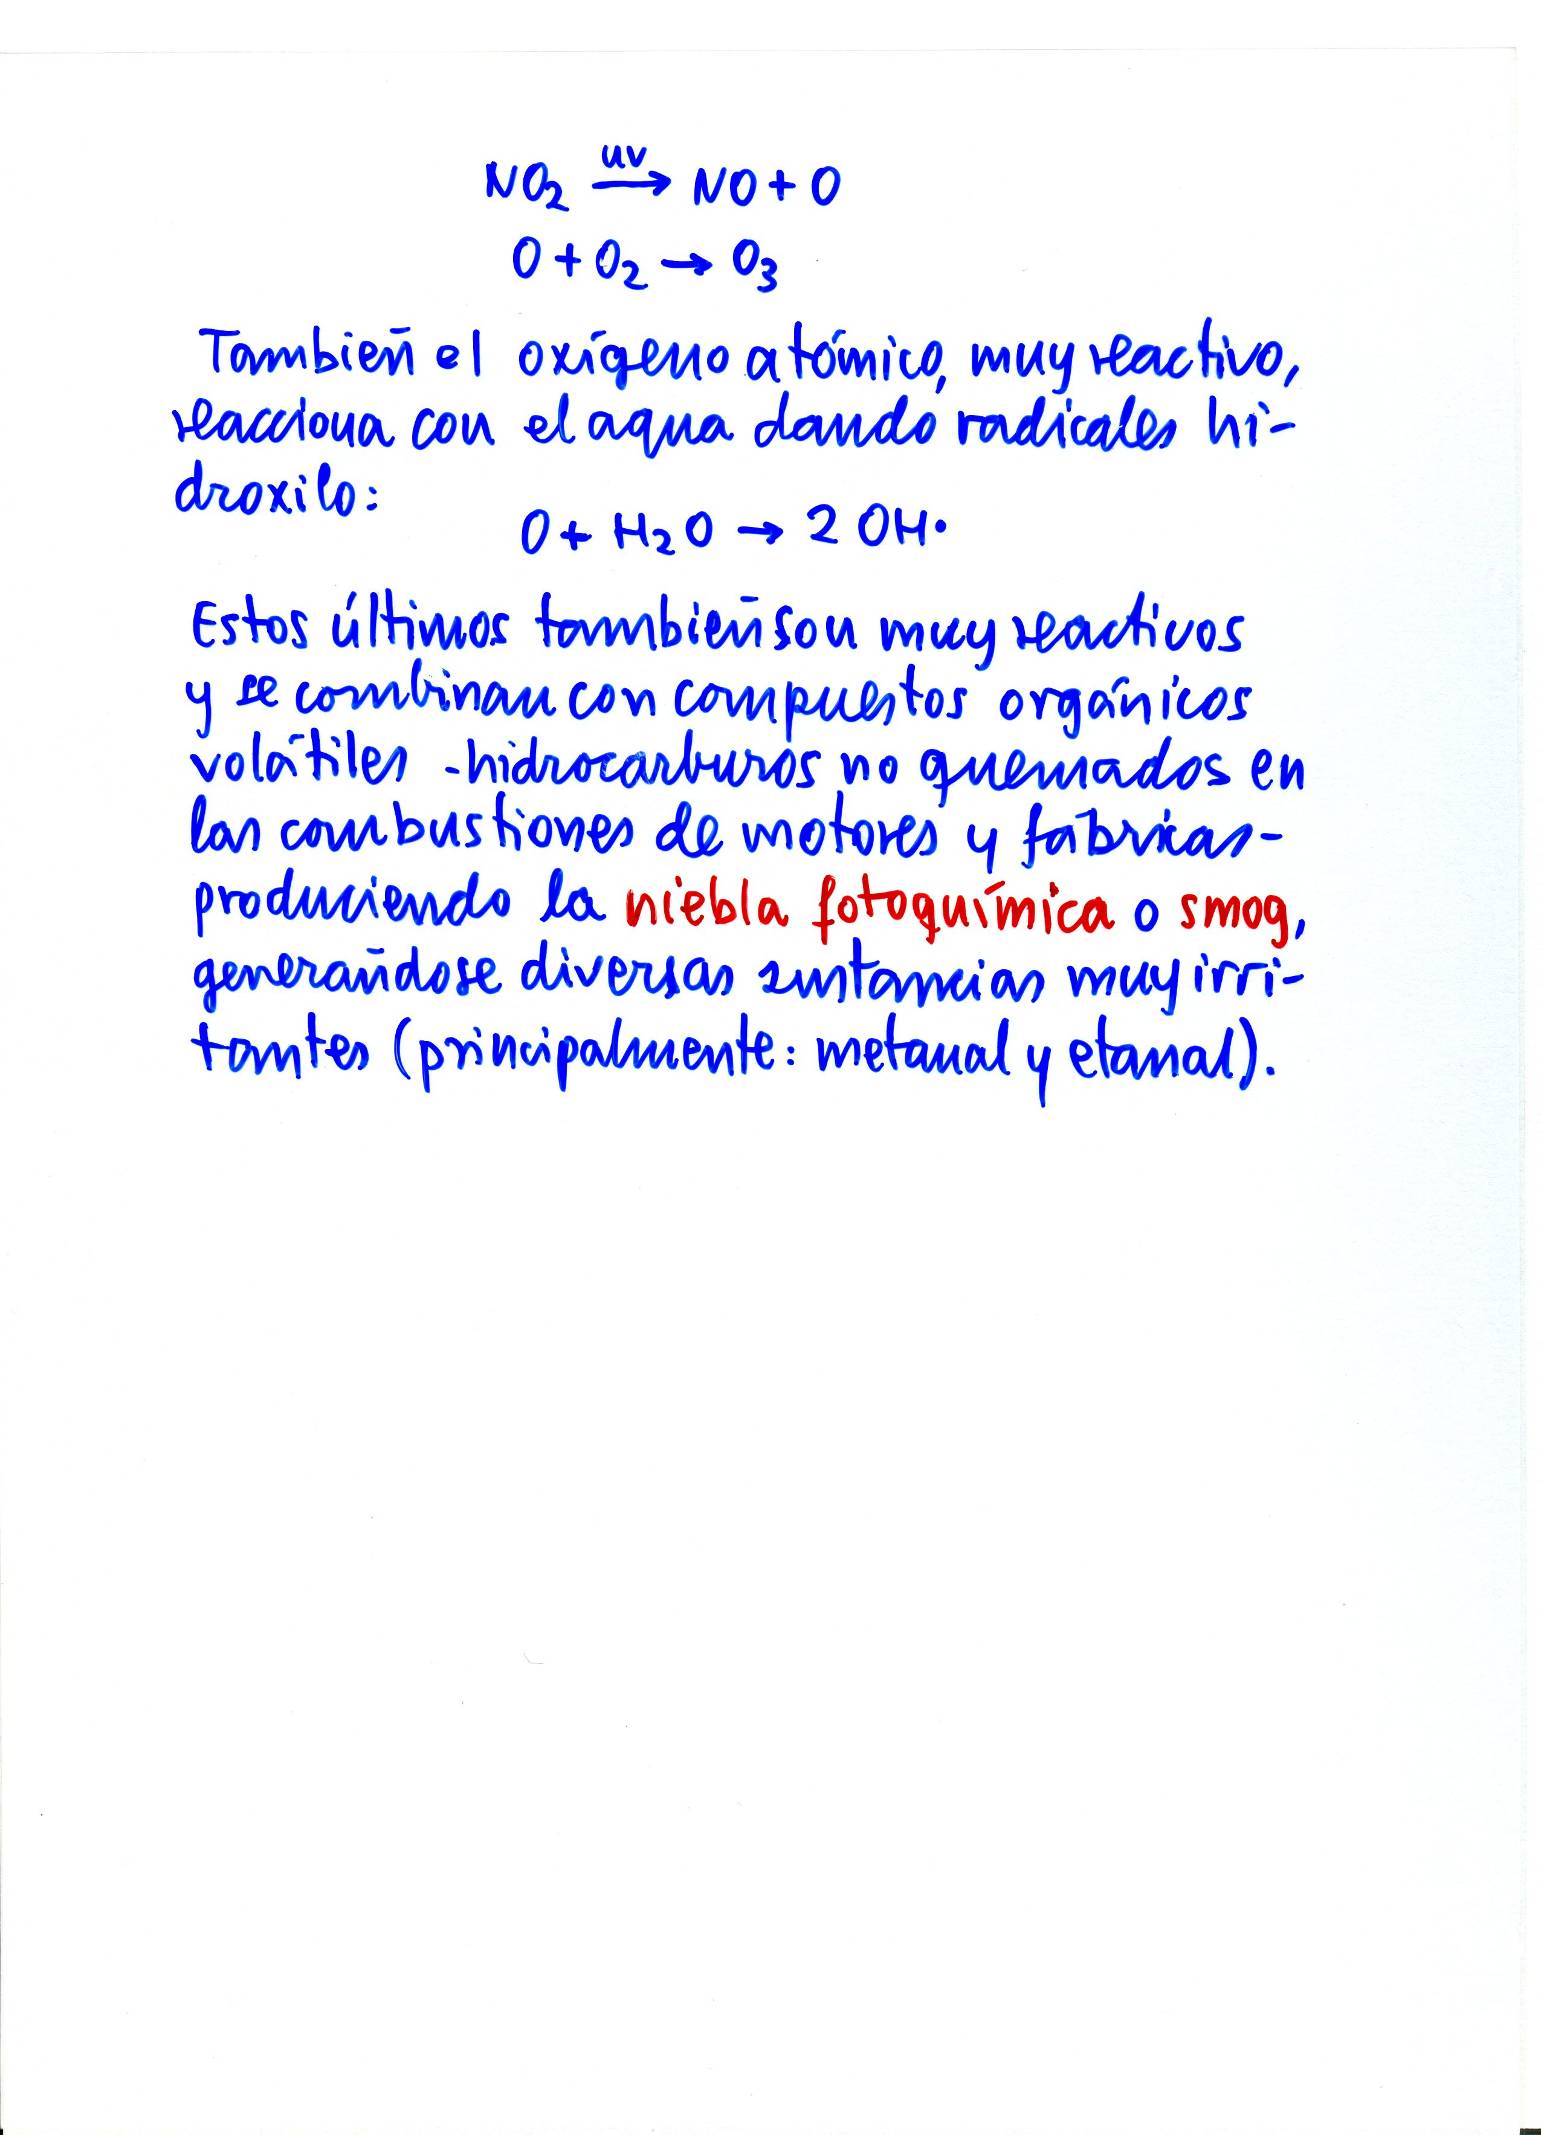 NO₂ →(uv) NO + O
O + O₂ → O₃
También el oxígeno atómico, muy reactivo,
reacciona con el agua dando radicales hi-
droxilo:
O + H₂O → 2 OH·
Estos últimos también son muy reactivos
y se combinan con compuestos orgánicos
volátiles -hidrocarburos no quemados en
las combustiones de motores y fábricas-
produciendo la niebla fotoquímica o smog,
generándose diversas sustancias muy irri-
tantes (principalmente: metanal y etanal).